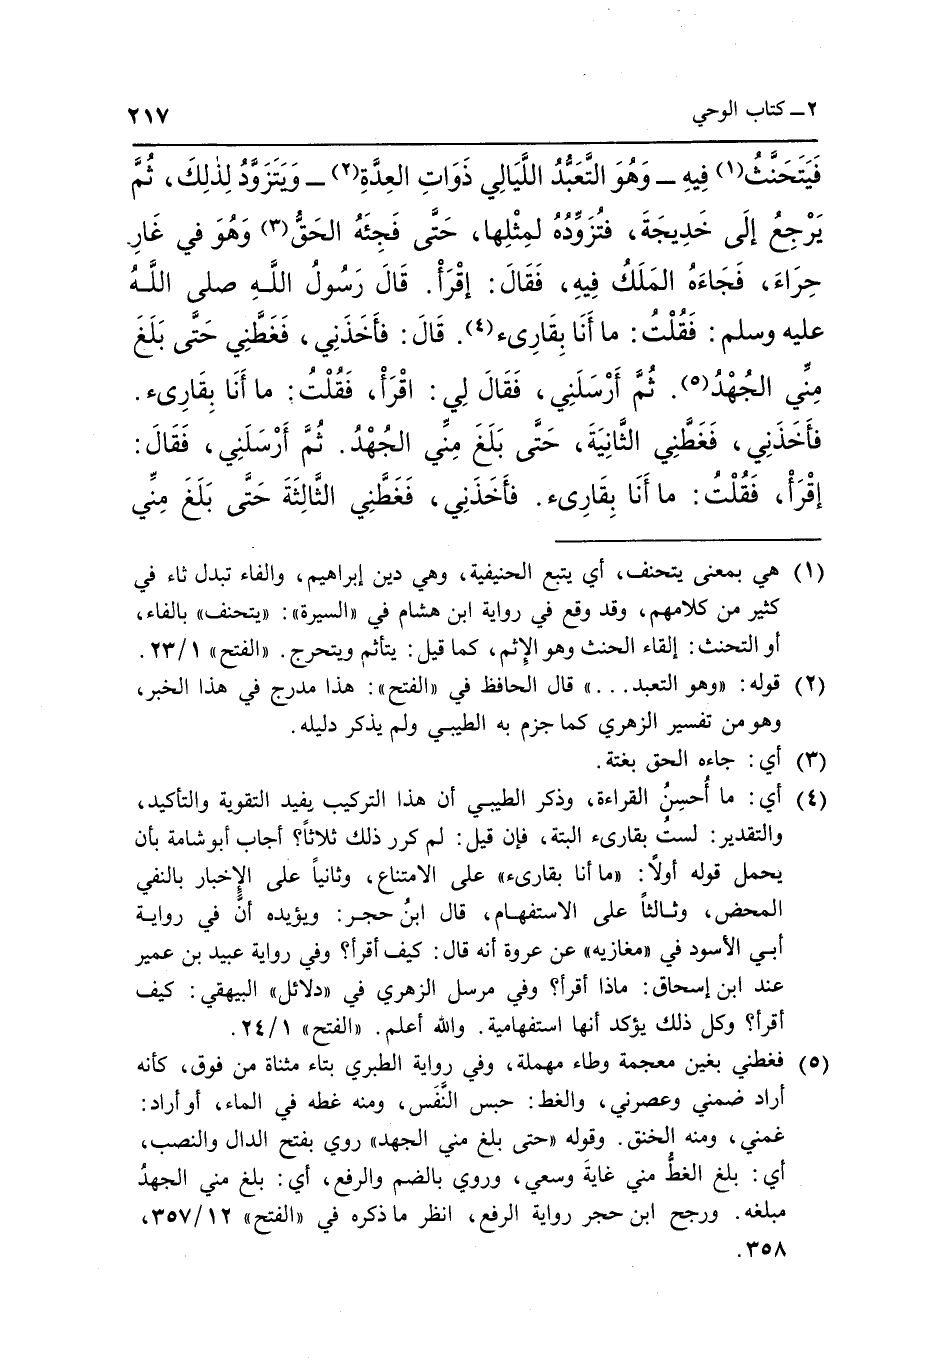 ٢ـ كتاب الوحي
٢١٧
فَيَتَحَنَّثُ(١) فِيهِ ـ وَهُوَ التَّعَبُّدُ اللَّيَالِي ذَوَاتِ العِدَّةِ(٢) ـ وَيَتَزَوَّدُ لِذٰلِكَ، ثُمَّ
يَرْجِعُ إلَى خَدِيجَةَ، فتُزَوِّدُهُ لمِثْلِها، حَتَّى فَجِئَهُ الحَقُّ(٣) وَهُوَ في غَارِ
حِرَاءَ، فَجَاءَهُ المَلَكُ فِيهِ، فَقَالَ: إقْرَأْ. قَالَ رَسُولُ اللَّهِ صلى اللَّهُ
عليه وسلم: فَقُلْتُ: ما أَنَا بِقَارِىء(٤). قَالَ: فأَخَذَنِي، فَغَطَّنِي حَتَّى بَلَغَ
مِنِّي الجُهْدُ(٥). ثُمَّ أَرْسَلَنِي، فَقَالَ لِي: اقْرَأْ، فَقُلْتُ: ما أَنَا بِقَارِىء.
فأَخَذَنِي، فَغَطَّنِي الثَّانِيَةَ، حَتَّى بَلَغَ مِنِّي الجُهْدُ. ثُمَّ أَرْسَلَنِي، فَقَالَ:
إقْرَأْ، فَقُلْتُ: ما أَنَا بِقَارِىء. فأَخَذَنِي، فَغَطَّنِي الثَّالِثَةَ حَتَّى بَلَغَ مِنِّي
(١) هي بمعنى يتحنف، أي يتبع الحنيفية، وهي دين إبراهيم، والفاء تبدل ثاء في
كثير من كلامهم، وقد وقع في رواية ابن هشام في «السيرة»: «يتحنف» بالفاء،
أو التحنث: إلقاء الحنث وهو الإثم، كما قيل: يتأثم ويتحرج. «الفتح» ٢٣/١.
(٢) قوله: «وهو التعبد...» قال الحافظ في «الفتح»: هذا مدرج في هذا الخبر،
وهو من تفسير الزهري كما جزم به الطيبي ولم يذكر دليله.
(٣) أي: جاءه الحق بغتة.
(٤) أي: ما أُحسِنُ القراءة، وذكر الطيبي أن هذا التركيب يفيد التقوية والتأكيد،
والتقدير: لستُ بقارىء البتة، فإن قيل: لم كرر ذلك ثلاثاً؟ أجاب أبو شامة بأن
يحمل قوله أولاً: «ما أنا بقارىء» على الامتناع، وثانياً على الإخبار بالنفي
المحض، وثالثاً على الاستفهام، قال ابنُ حجر: ويؤيده أنَّ في رواية
أبي الأسود في «مغازيه» عن عروة أنه قال: كيف أقرأ؟ وفي رواية عبيد بن عمير
عند ابن إسحاق: ماذا أقرأ؟ وفي مرسل الزهري في «دلائل» البيهقي: كيف
أقرأ؟ وكل ذلك يؤكد أنها استفهامية. والله أعلم. «الفتح» ٢٤/١.
(٥) فغطني بغين معجمة وطاء مهملة، وفي رواية الطبري بتاء مثناة من فوق، كأنه
أراد ضمني وعصرني، والغط: حبس النَّفَس، ومنه غطه في الماء، أو أراد:
غمني، ومنه الخنق. وقوله «حتى بلغ مني الجهد» روي بفتح الدال والنصب،
أي: بلغ الغطُّ مني غايةَ وسعي، وروي بالضم والرفع، أي: بلغ مني الجهدُ
مبلغه. ورجح ابن حجر رواية الرفع، انظر ما ذكره في «الفتح» ٣٥٧/١٢،
٣٥٨.